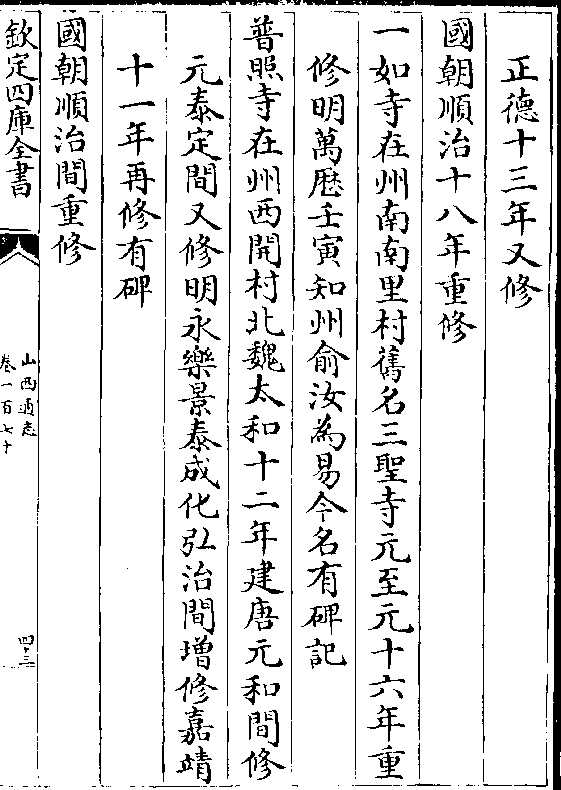 正德十三年又修
國朝順治十八年重修
一如寺在州南南里村舊名三聖寺元至元十六年重
修明萬歷壬寅知州俞汝為易今名有碑記
普照寺在州西開村北魏太和十二年建唐元和間修
元泰定間又修明永樂景泰成化弘治間增修嘉靖
十一年再修有碑
國朝順治間重修
欽定四庫全書
山西通志
卷一百七十
四十三